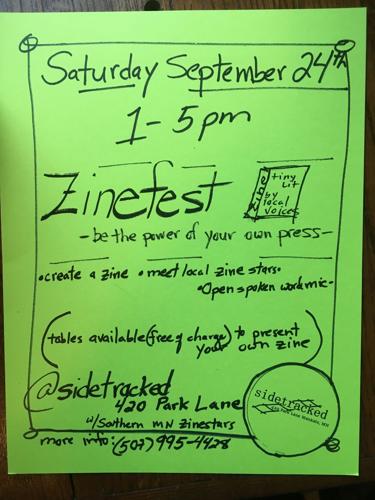 Saturday September 24th
1-5pm
Zinefest
Zine!
tiny
Lit
by
local
voices
-be the power of your own press-
•create a zine •meet local zine stars•
•Open spoken word mic-
(tables available (free of charge) to present
your own zine)
@sidetracked
420 Park Lane
w/ Southern MN Zinestars
more info: (507) 995-4428
sidetracked
420 Park Lane Mankato, MN